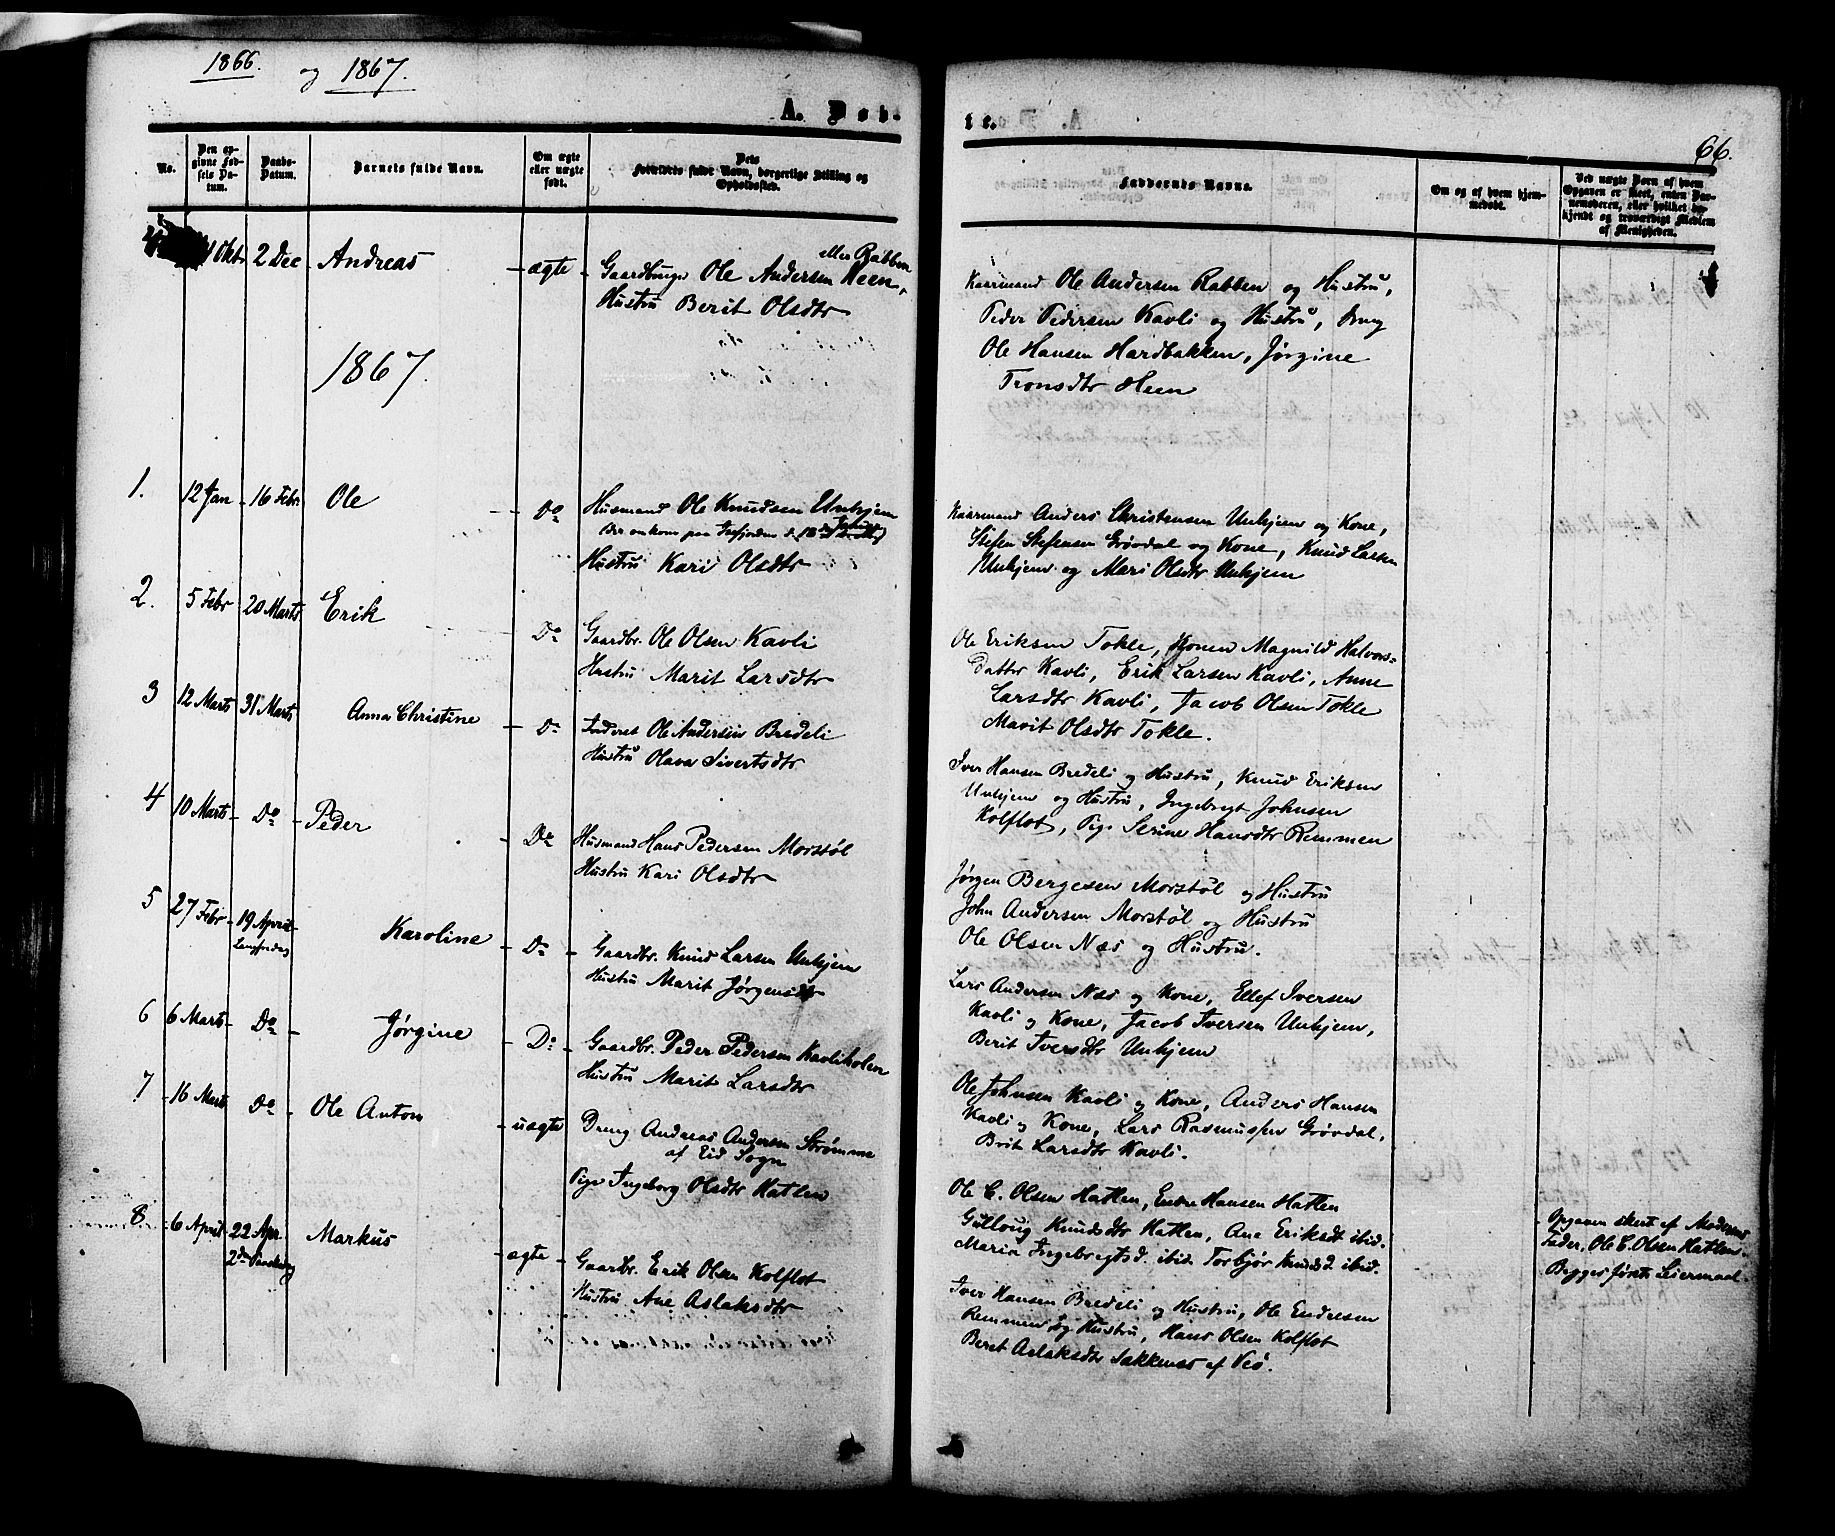 1866. og 1867.
A. Døb-
te.
66.
No.
Den op-
givne Fød-
sels Da-
tum.
Daabs-
Datum.
Barnets fulde Navn.
Om ægte
eller uægte
født.
Forældres fulde Navn, borgerlige Stilling og
Opholdssted.
Faddernes Navne.
Om og af hvem hjem-
medøbt.
Ved uægte Børn af hvem
Opgaven er skeet, enten Bar-
nemoderen, eller hvilket be-
kjendt og troværdigt Medlem
af Menigheden.
Okt 2 Dec Andreas ægte Gaardbruger Ole Andersen Heen,
eller Rabben
Hustru Berit Olsdtr
Kaarmand Ole Andersen Rabben og Hustru,
Peder Pedersen Kavli og Hustru, Dreng
Ole Hansen Hardbakken, Jørgine
Tronsdtr Heen
1867.
1. 12 Jan 16 Febr Ole Do Husmand Ole Knudsen Unhjem
Hustru Kari Olsdtr
Kaarmand Anders Christensen Unhjem og Kone,
Stefen Stefensen Grøvdal og Kone, Knud Larsen
Unhjem og Mari Olsdtr Unhjem
2. 5 Febr 20 Marts Erik Do Gaardbr. Ole Olsen Kavli
Hustru Marit Larsdtr
Ole Eriksen Tokle, Konen Magnild Halvors-
datter Kavli, Erik Larsen Kavli, Anne
Larsdtr Kavli, Jacob Olsen Tokle
Marit Olsdtr Tokle.
3 12 Marts 31 Marts Anna Christine Do Inderst Ole Andersen Bredeli
Hustru Olava Sivertsdtr
Iver Hansen Bredeli og Hustru, Knud Eriksen
Unhjem og Hustru, Ingebregt Johnsen
Kolflot, Pige Serine Hansdtr Remmen
4 10 Marts Do Peder Do Husmand Hans Pedersen Morstøl
Hustru Kari Olsdtr
Jørgen Bergesen Morstøl og Hustru
John Andersen Morstøl og Hustru
Ole Olsen Næs og Hustru.
5 27 Febr 19 April Karoline Do Gaardbr. Knud Larsen Unhjem
Langfredag
Hustru Marit Jørgensdtr
Lars Andersen Næs og Kone, Ellef Iversen
Kavli og Kone, Jacob Iversen Unhjem,
Berit Iversdtr Unhjem
6 6 Marts Do Jørgine Do Gaardbr. Peder Pedersen Kavliholen
Hustru Marit Larsdtr
Ole Johnsen Kavli og Kone, Anders Hansen
Kavli og Kone, Lars Rasmussen Grøvdal,
Brit Larsdtr Kavli.
7 16 Marts Do Ole Anton uægte Dreng Andreas Andersen Strømme
af Eid Sogn
Pige Ingeborg Olsdtr Hatlen
Ole C. Olsen Hatlen, Endre Hansen Hatlen
Gulloug Knudsdtr Hatlen, Ane Eriksdt ibid.
Maria Ingebregtsd. ibid. Torbjør Knudsd. ibid.
Opgaven skeet af Moderens
Fader, Ole C. Olsen Hatlen.
Begges første Leiermaal
8 6 April 22 Apr Markus ægte Gaardbr. Erik Olsen Kolflot
2den Paaskedag
Hustru Ane Aslaksdtr
Iver Hansen Bredeli og Hustru, Ole Endresen
Remmen og Hustru, Hans Olsen Kolflot
Beret Aslaksdtr Sækkenæs af Veø.